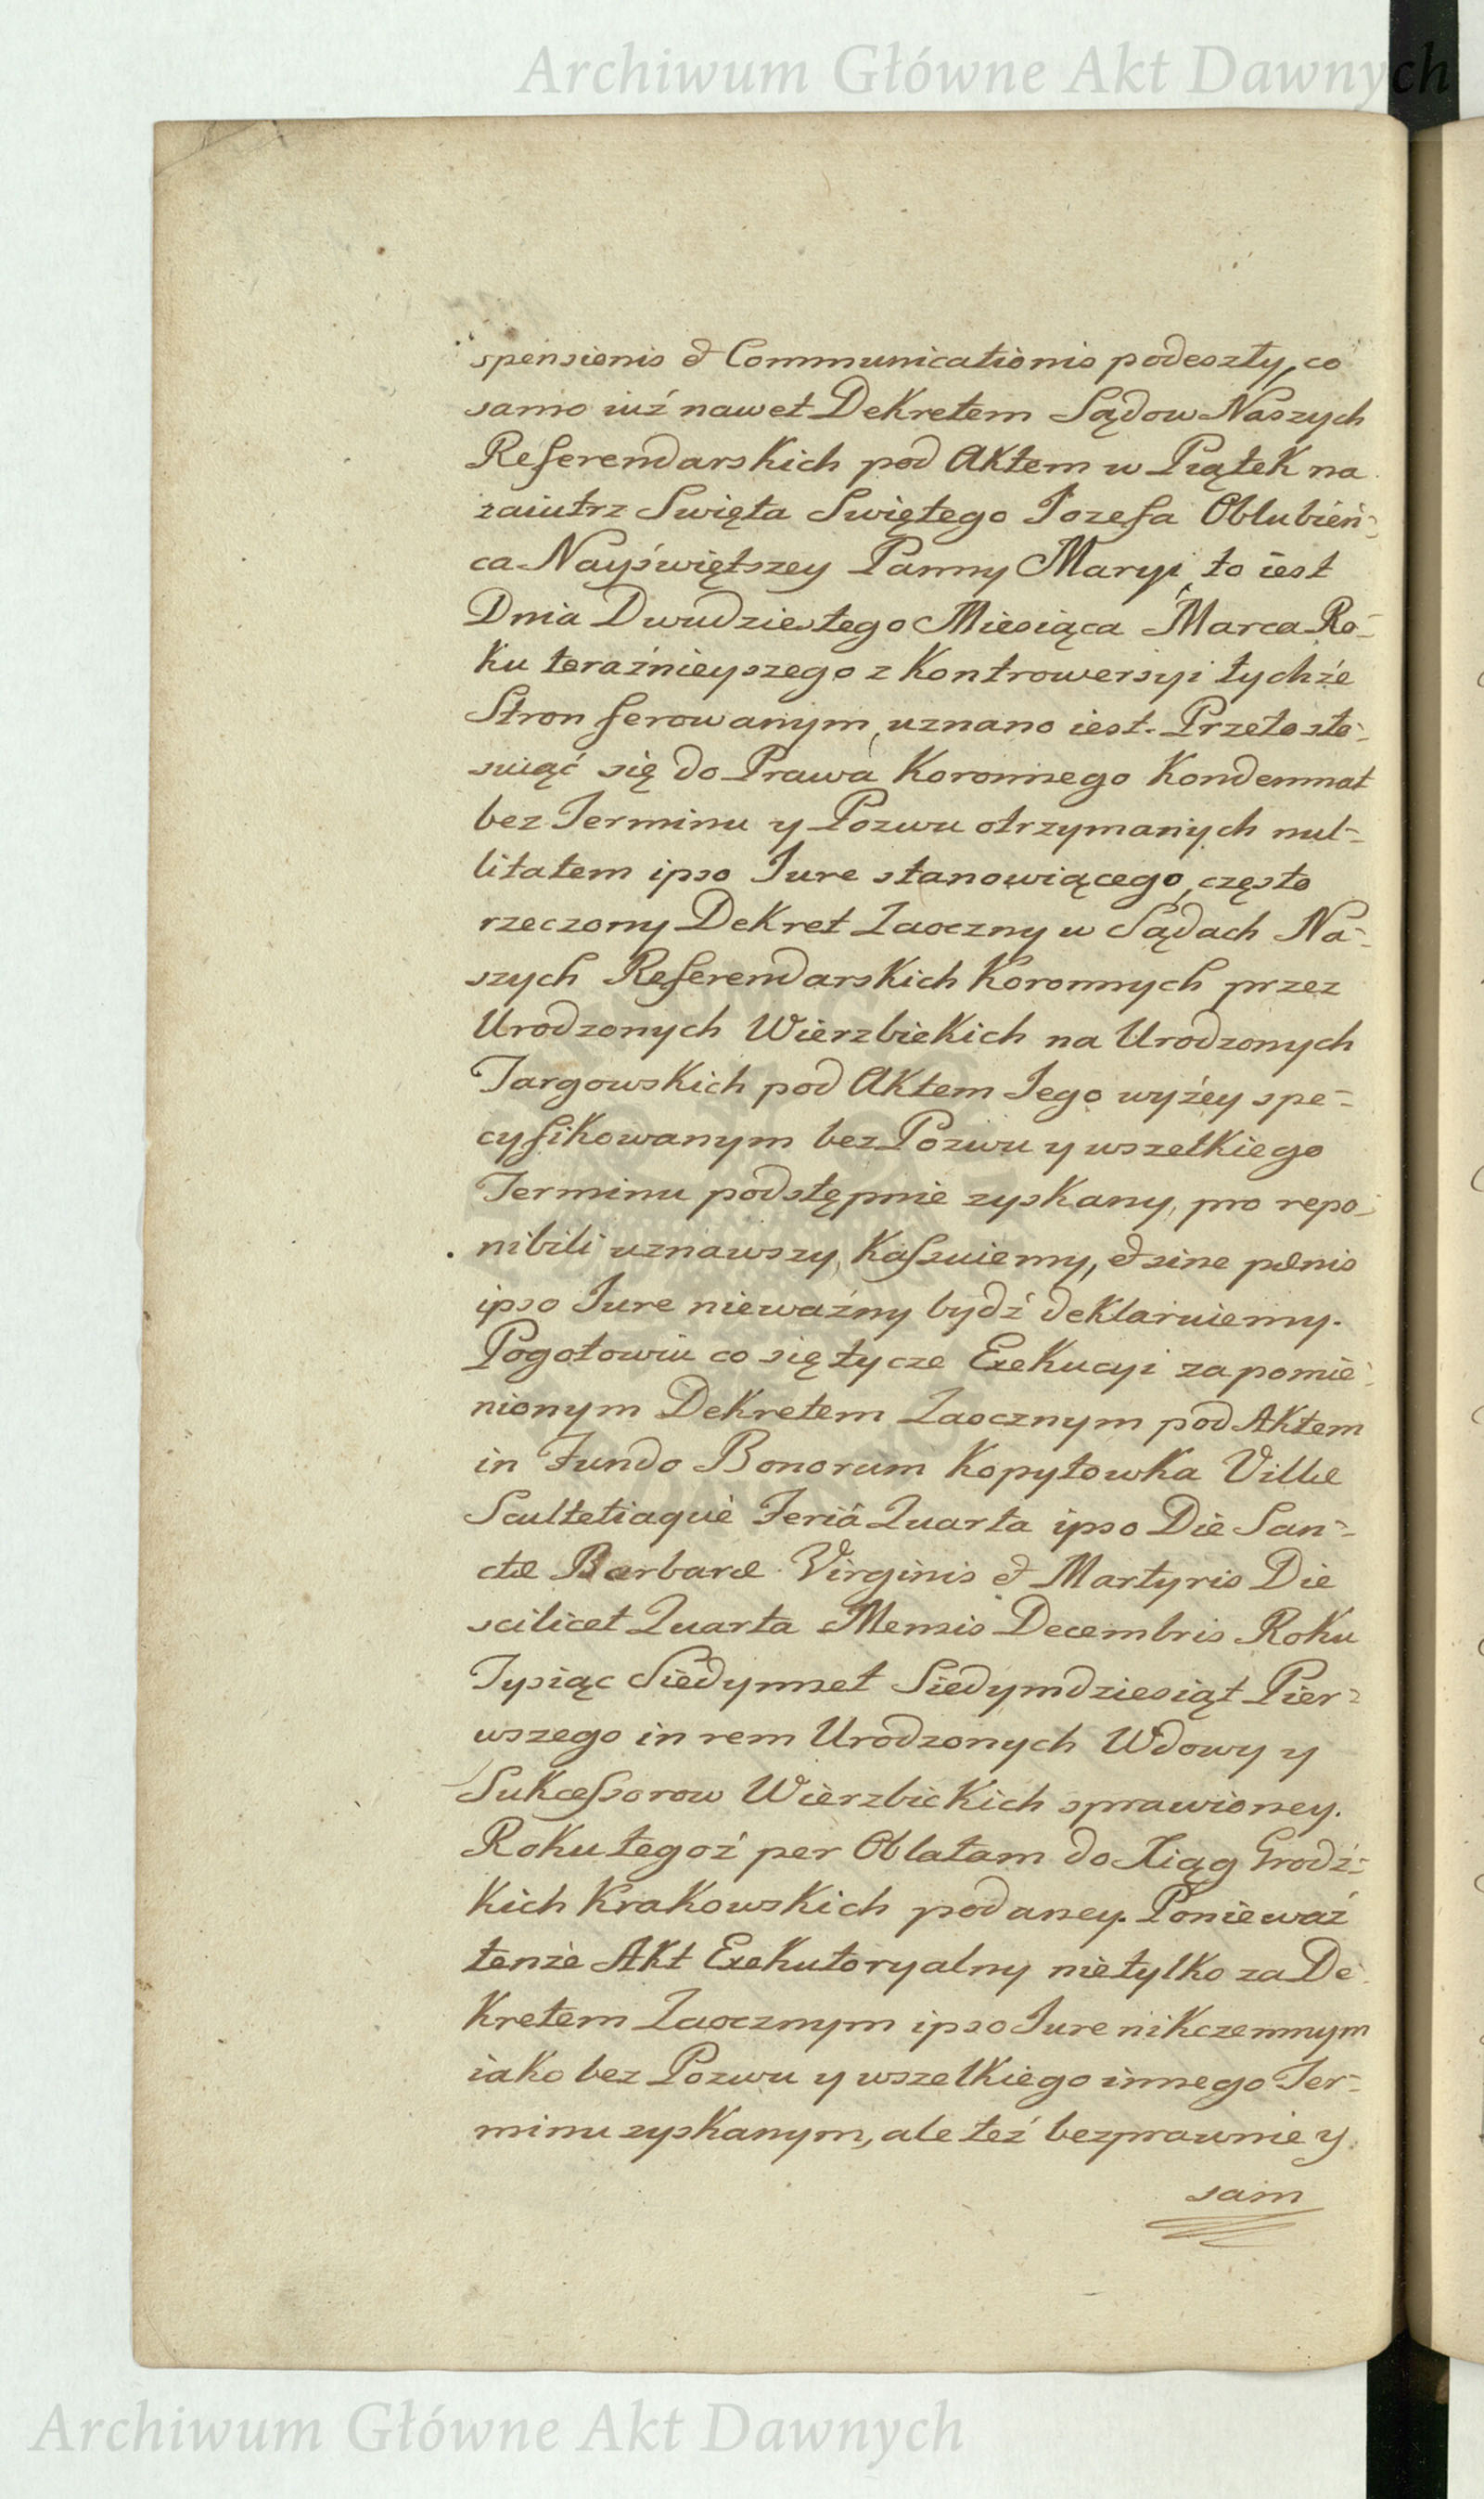 Archiwum Główne Akt Dawnych
spensionis & Communicationis podeszły, co
samo iuż nawet Dekretem Sądow Naszych
Referendarskich pod Aktem w Piątek na
zaiutrz Swięta Swiętego Jozefa Oblubień-
ca Nayświętszey Panny Maryi, to iest
Dnia Dwudziestego Miesiąca Marca Ro-
ku teraźnieyszego z Kontrowersyi tychże
Stron ferowanym, uznano iest. Przeto sto-
suiąć się do Prawa Koronnego Kondemnat
bez Terminu y Pozwu otrzymanych nul-
litatem ipso Jure stanowiącego, często
rzeczony Dekret Zaoczny w Sądach Na-
szych Referendarskich Koronnych przez
Urodzonych Wierzbickich na Urodzonych
Targowskich pod Aktem Jego wyżey spe-
cyfikowanym bez Pozwu y wszelkiego
Terminu podstępnie zyskany, pro repo-
nibili uznawszy, kassuiemy, & sine pœnis
ipso Jure nieważny bydź deklaruiemy.
Pogotowiu co się tycze Exekucyi za pomie-
nionym Dekretem Zaocznym pod Aktem
in Fundo Bonorum Kopytowka Villæ
Scultetiaque Feriâ Quarta ipso Die San-
ctæ Barbaræ Virginis & Martyris Die
scilicet Quarta Mensis Decembris Roku
Tysiąc Siedymset Siedymdziesiąt Pier-
wszego in rem Urodzonych Wdowy y
Sukcessorow Wierzbickich sprawioney.
Roku tegoż per Oblatam do Xiąg Grodz-
kich Krakowskich podaney. Ponieważ
tenże Akt Exekutoryalny nietylko za De-
kretem Zaocznym ipso Jure nikczemnym
iako bez Pozwu y wszelkiego innego Ter-
minu zyskanym, ale też bezprawnie y
sam
Archiwum Główne Akt Dawnych